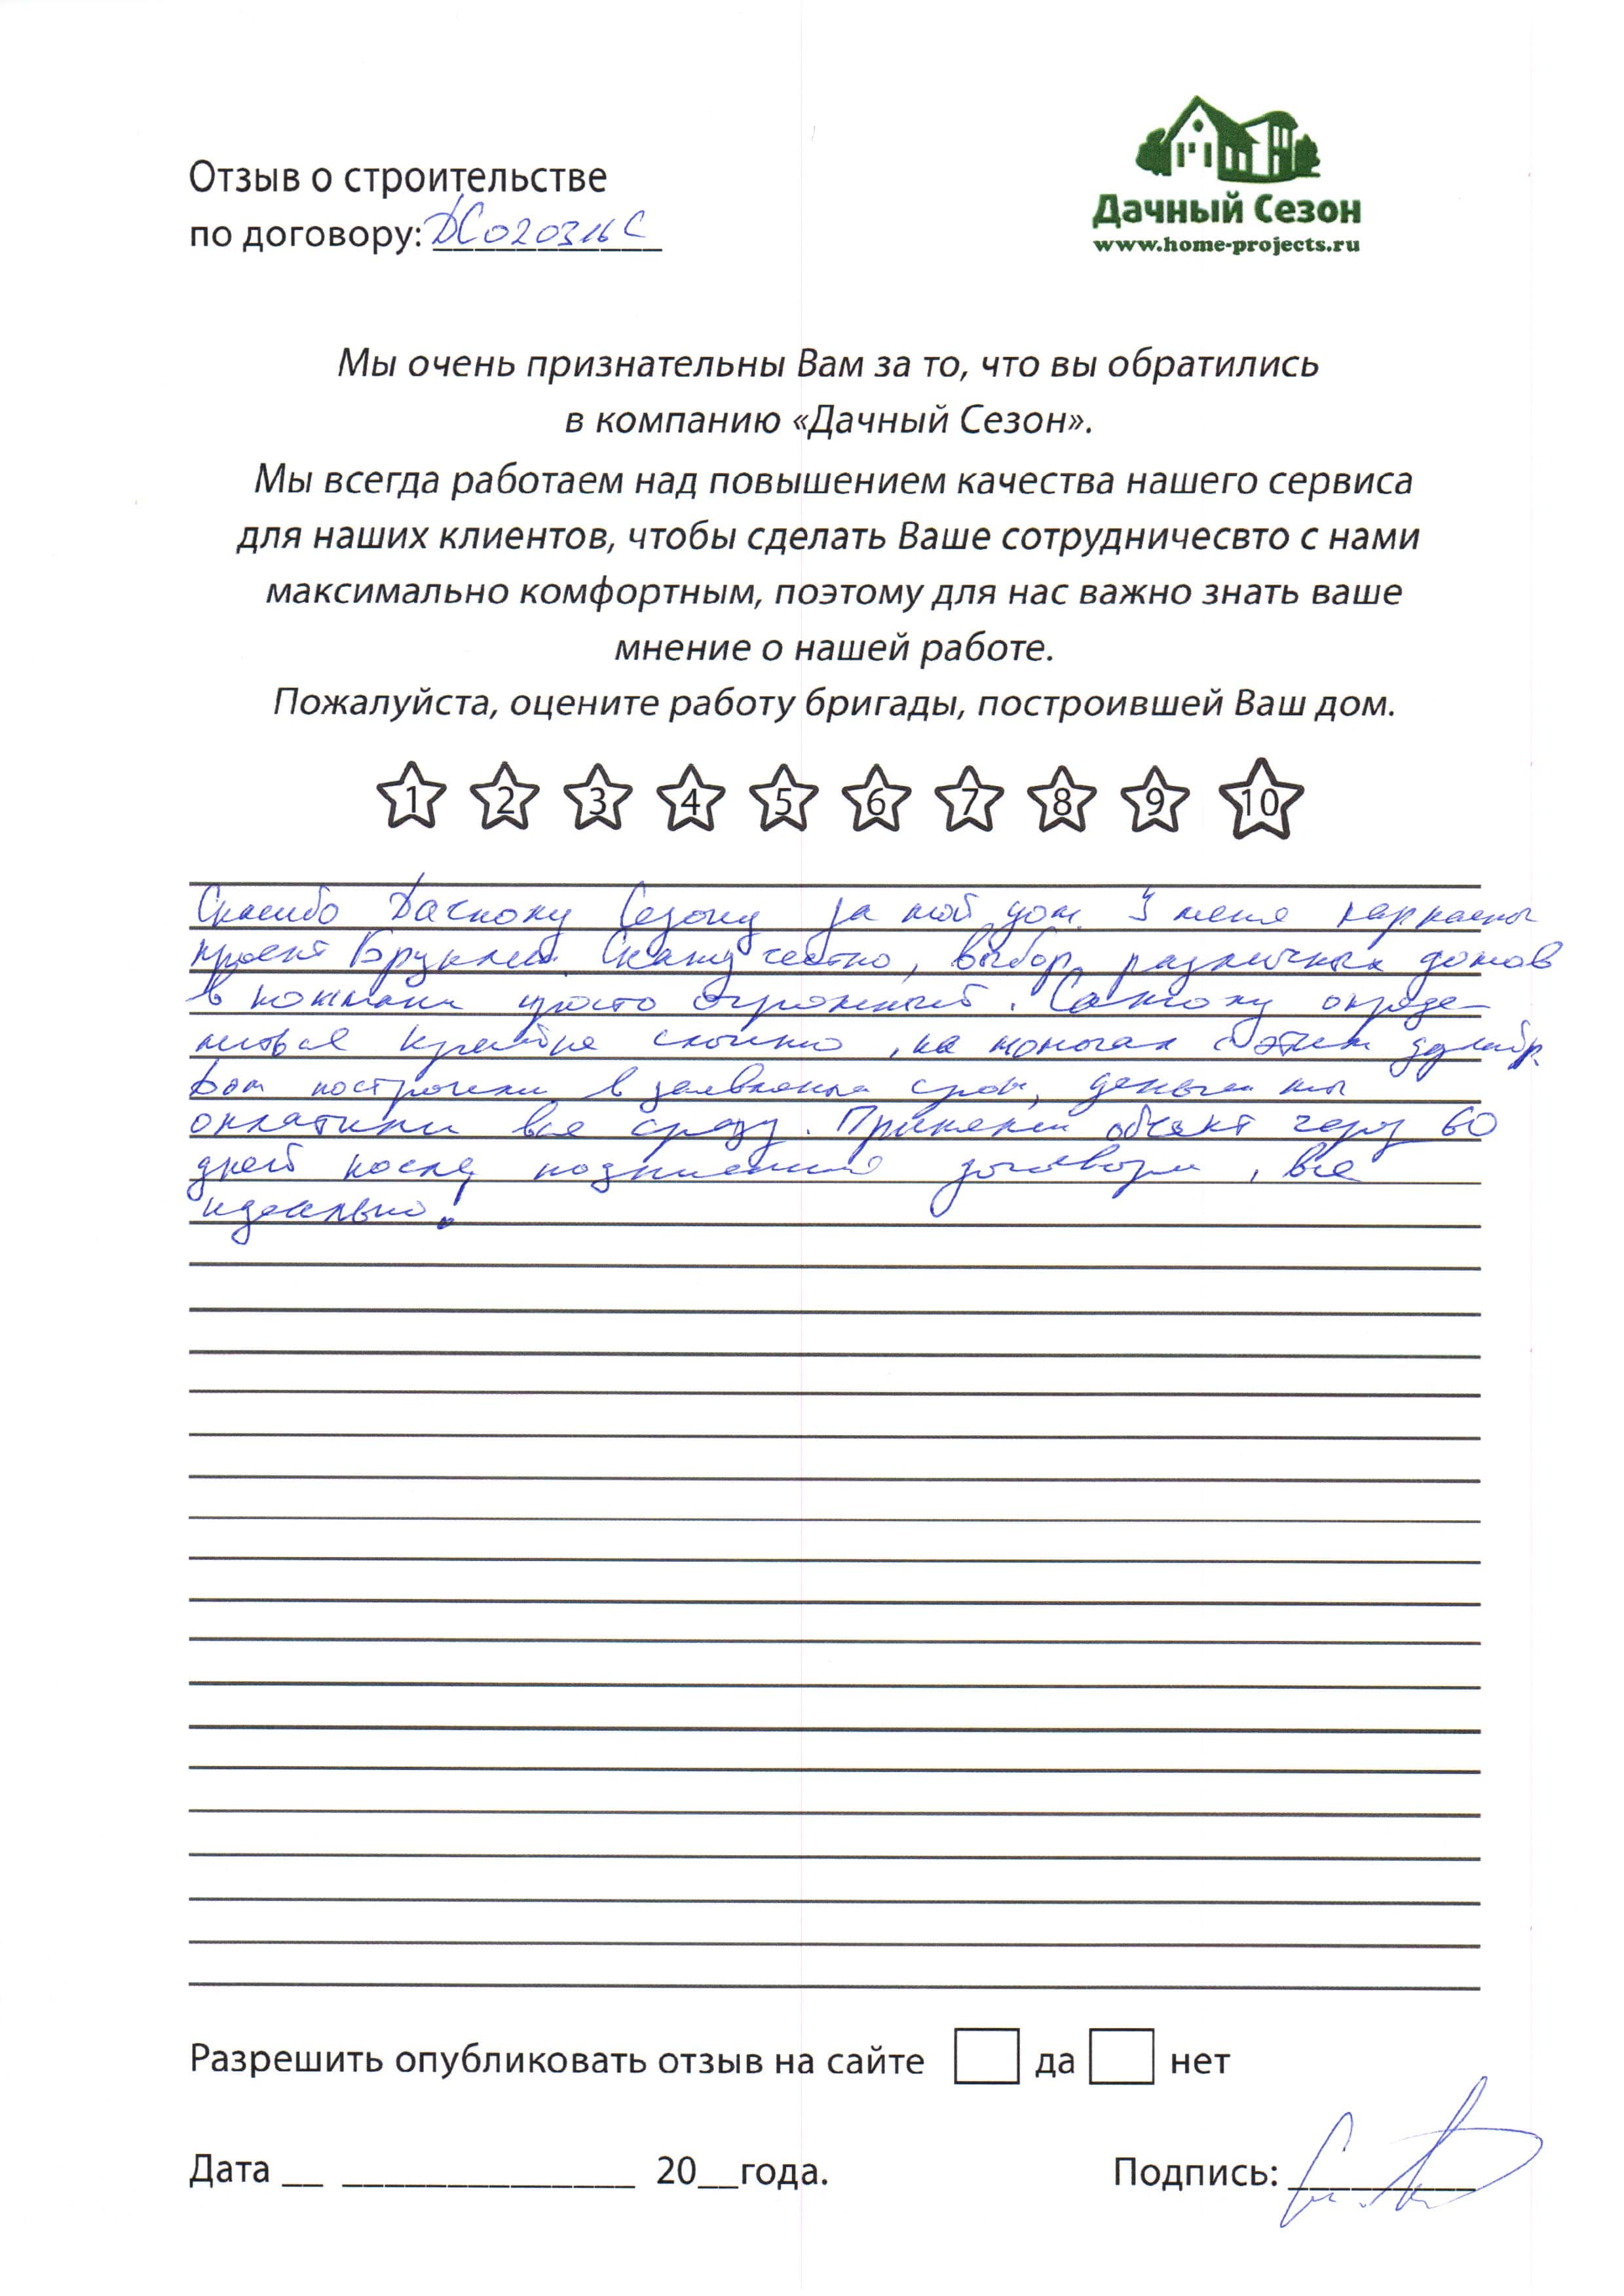 Отзыв о строительстве
по договору: ДС020316С
Дачный Сезон
www.home-projects.ru
Мы очень признательны Вам за то, что вы обратились
в компанию «Дачный Сезон».
Мы всегда работаем над повышением качества нашего сервиса
для наших клиентов, чтобы сделать Ваше сотрудничесвто с нами
максимально комфортным, поэтому для нас важно знать ваше
мнение о нашей работе.
Пожалуйста, оцените работу бригады, построившей Ваш дом.
1 2 3 4 5 6 7 8 9 10
Спасибо Дачному Сезону за мой дом. У меня каркасный
проект Бруклин. Скажу честно, выбор различных домов
в компании просто огромный. Самому опреде-
литься крайне сложно, с этим
Дом построили в срок, деньги мы
оплатили все сразу. Приняли объект через 60
дней после подписания договора, все
идеально!
Разрешить опубликовать отзыв на сайте да нет
Дата __ ______________ 20__года. Подпись: